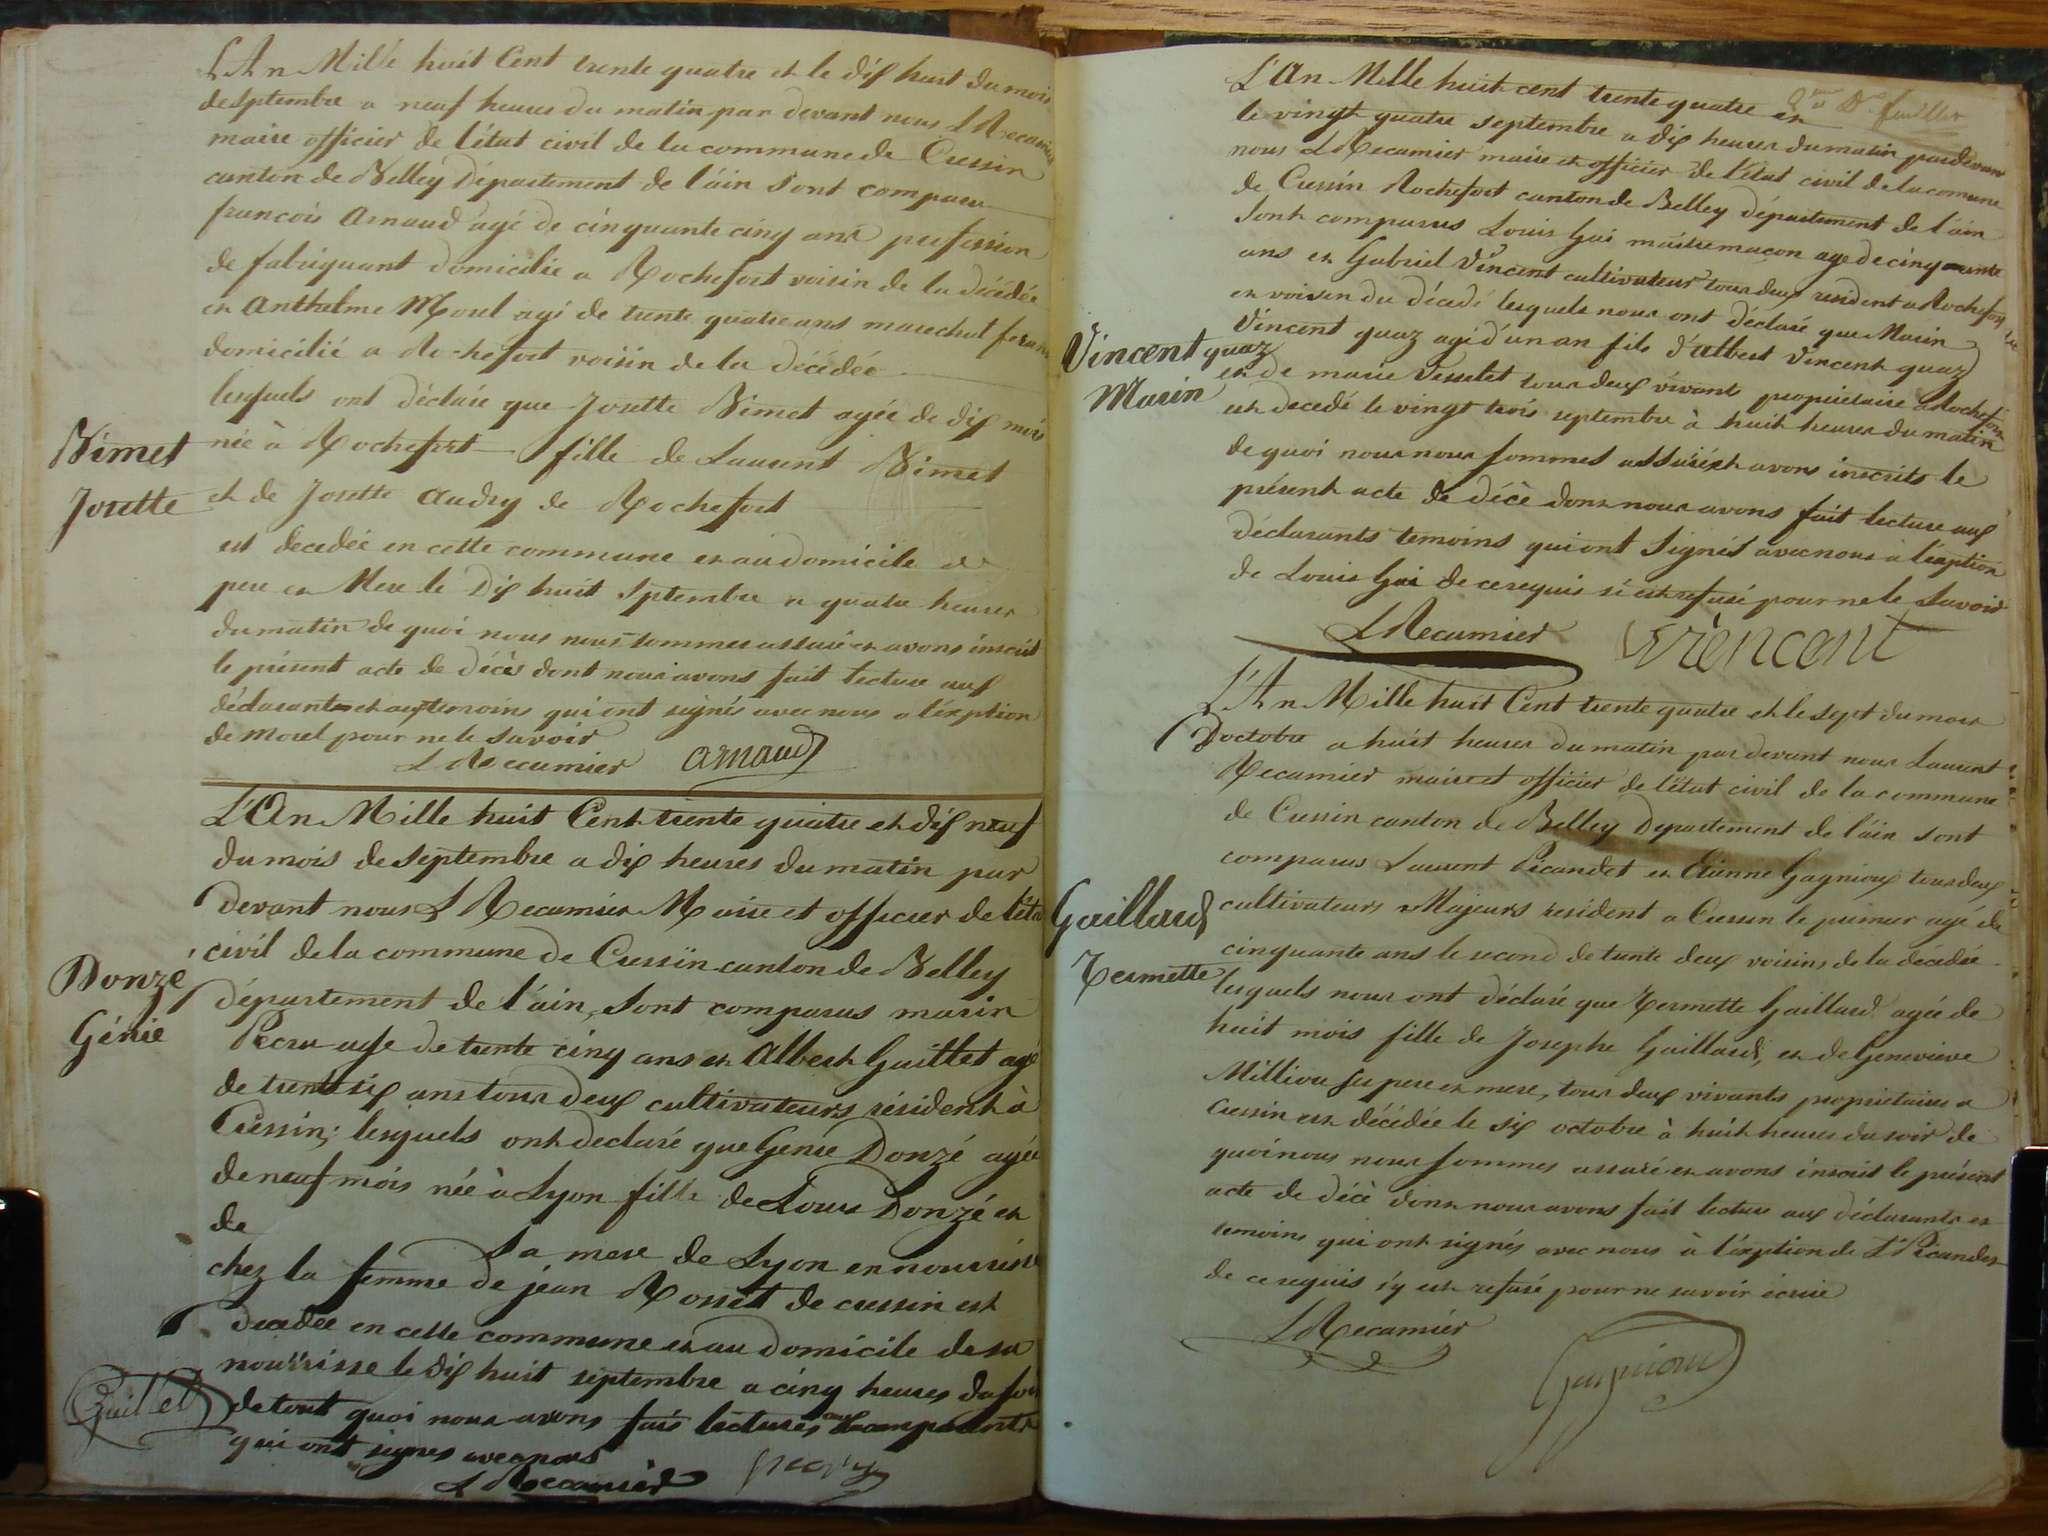 L'An Mille huit Cent trente quatre et le dix huit du mois
de Septembre a neuf heures du matin par devant nous L Recamier
maire officier de l'état civil de la commune de Cressin
canton de Belley Département de l'ain sont comparu
francois Arnaud agé de cinquante cinq ans profession
de fabriquant domicilié a Rochefort voisin de la décédée
et Anthelme Morel agé de trente quatre ans marechal
domicilié a Rochefort voisin de la décédée
lesquels ont déclaré que Josette Bimet agée de dix mois
Bimet
Josette
née à Rochefort fille de Laurent Bimet
et de Josette Audry de Rochefort
est decedée en cette commune et au domicile de
pere et Mere le Dix huit Septembre a quatre heures
du matin de quoi nous nous sommes assuré et avons inscrit
le présent acte de décès dont nous avons fait lecture aux
déclarants et aux temoins qui ont signés avec nous a l'exeption
de Morel pour ne le savoir
L Recamier arnaud
L'An Mille huit Cent trente quatre et dix neuf
du mois de Septembre a dix heures du matin par
devant nous L Recamier Maire et officier de l'état
civil de la commune de Cressin canton de Belley
Donzé
Génie
département de l'ain, sont comparus marin
age de trente cinq ans et Albert Guillet agé
de trente six ans tous deux cultivateurs résident à
Cressin; lesquels ont declaré que Genie Donzé agée
de neuf mois née à Lyon fille de Louis Donzé et
de
Sa mere de Lyon en nourrise
chez la femme de jean Rosset de cressin est
decedée en cette commune et au domicile de sa
nourrisse le dix huit septembre a cinq heures du soir
Guillet
de tout quoi nous avons fais lectures aux comparants
qui ont signes avec nous
L Recamier
L'An Mille huit cent trente quatre et
le vingt quatre septembre a dix heures du matin pardevant
nous L Recamier maire et officier de l'état civil de la comune
de Cressin Rochefort canton de Belley département de l'ain
Sont comparus Louis Gai maitre macon age de cinquante
ans et Gabriel Vincent cultivateur tous deux resident a Rochefort
et voisin du décedé lesquels nous ont déclaré que Marin
Vincent quaz
Marin
Vincent quaz agé d'un an fils d'albert Vincent quaz
et de marie Vesselet tous deux vivant propriétaire a Rochefort
est decedé le vingt trois septembre à huit heures du matin
de quoi nous nous sommes assuré et avons inscrits le
présent acte de décè dont nous avons fait lecture aux
déclarants temoins qui ont Signés avec nous a l'exeption
de Louis Gai de ce requis s'est refusé pour ne le Savoir
L Recamier Vincent
L'An Mille huit Cent trente quatre et le sept du mois
Doctobre a huit heures du matin par devant nous Laurent
Recamier maire et officier de l'état civil de la commune
de Cressin canton de Belley Departement de l'ain sont
comparus Laurent Picandet et Etienne Gagnioux tous deux
Gaillard
Termette
cultivateurs Majeurs resident a Cressin le premier agé de
cinquante ans le second de trente deux voisins de la décédée
lesquels nous ont déclaré que Termette Gaillard agée de
huit mois fille de Josephe Gaillard, et de Genevieve
Milliou ses pere et mere, tous deux vivants proprietaires a
Cressin est décédée le six octobre à huit heures du soir de
quoi nous nous sommes assuré et avons inscrit le présent
acte de décè dont nous avons fait lecture aux déclarants et
temoins qui ont signés avec nous à l'exeption de Lt Picandet
de ce requis s'y est refusé pour ne savoir écrire
L Recamier
Gagnioux